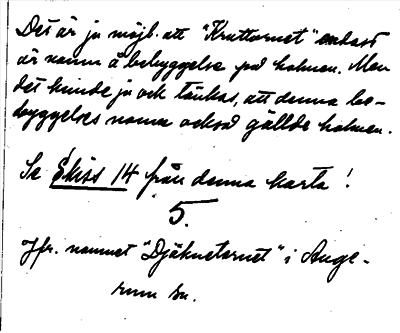 Det är ju möjl. att "Kruttornet" endast
är namn å bebyggelse på holmen. Men
det kunde ju ock tänkas, att denna be-
byggelses namn också gällde holmen.
Se Skiss 14 från denna karta!
5.
Jfr. namnet "Djäknetornet" i Auge-
rum sn.